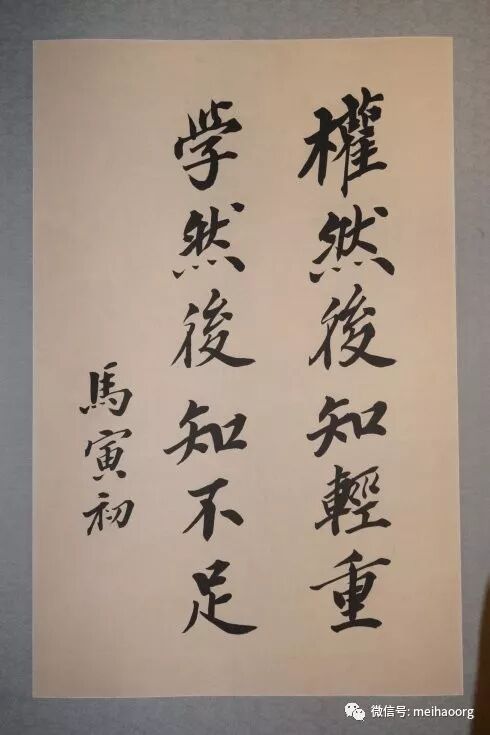 權然後知輕重
学然後知不足
馬寅初
微信号: meihaoorg